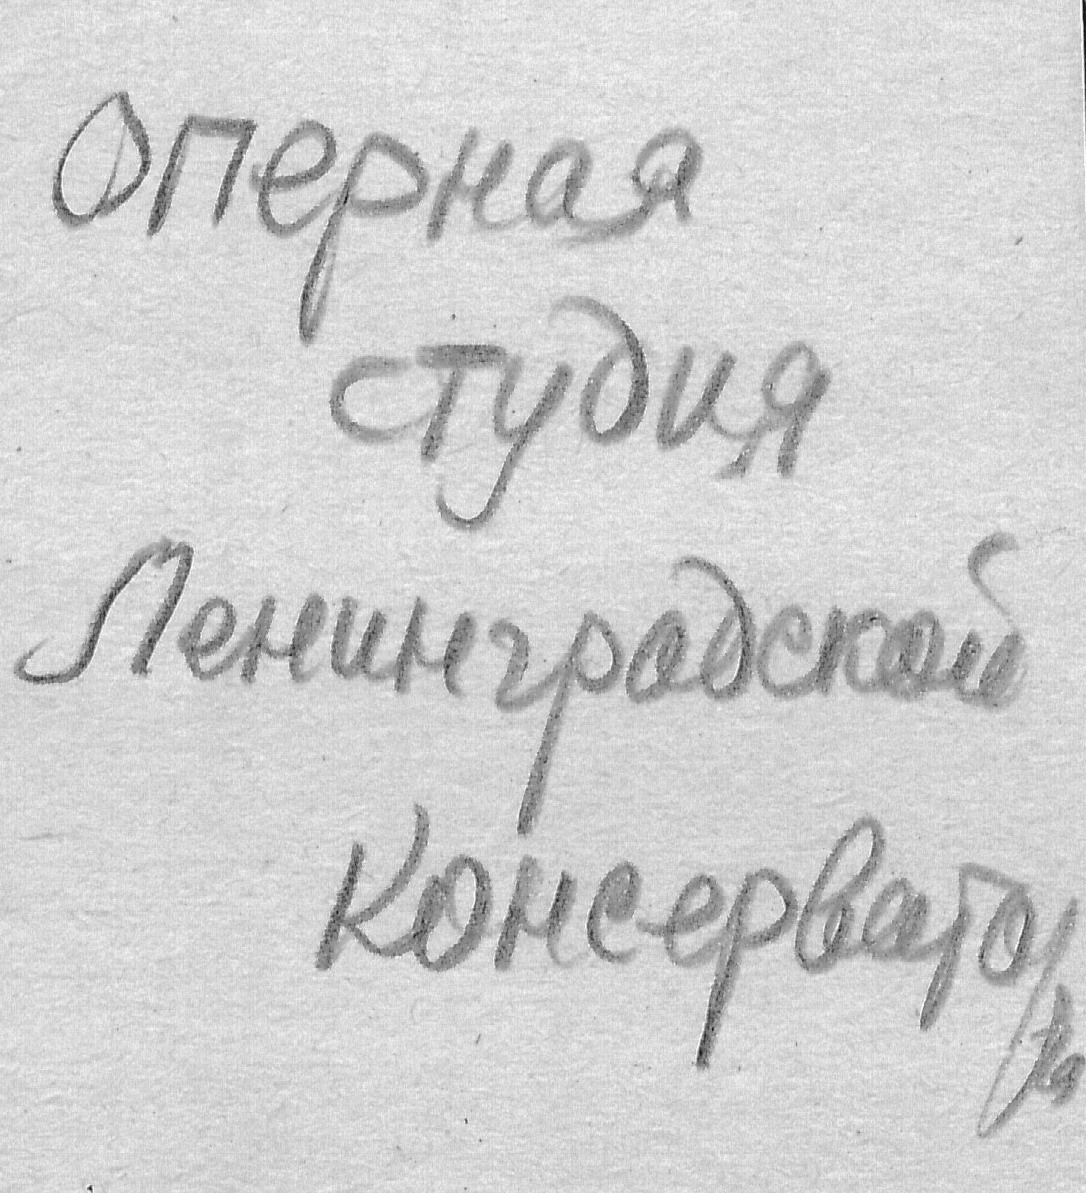 Оперная
студия
Ленинградской
Консерватория